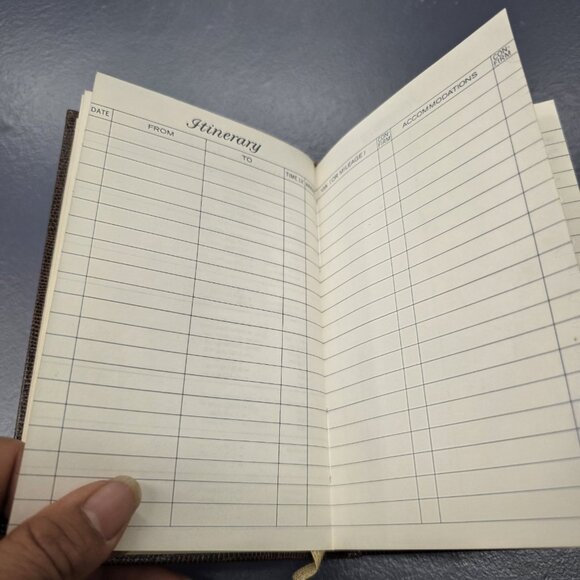 Itinerary
DATE
FROM
TO
OR MILEAGE)
CON-
FIRM
ACCOMMODATIONS
CON-
FIRM